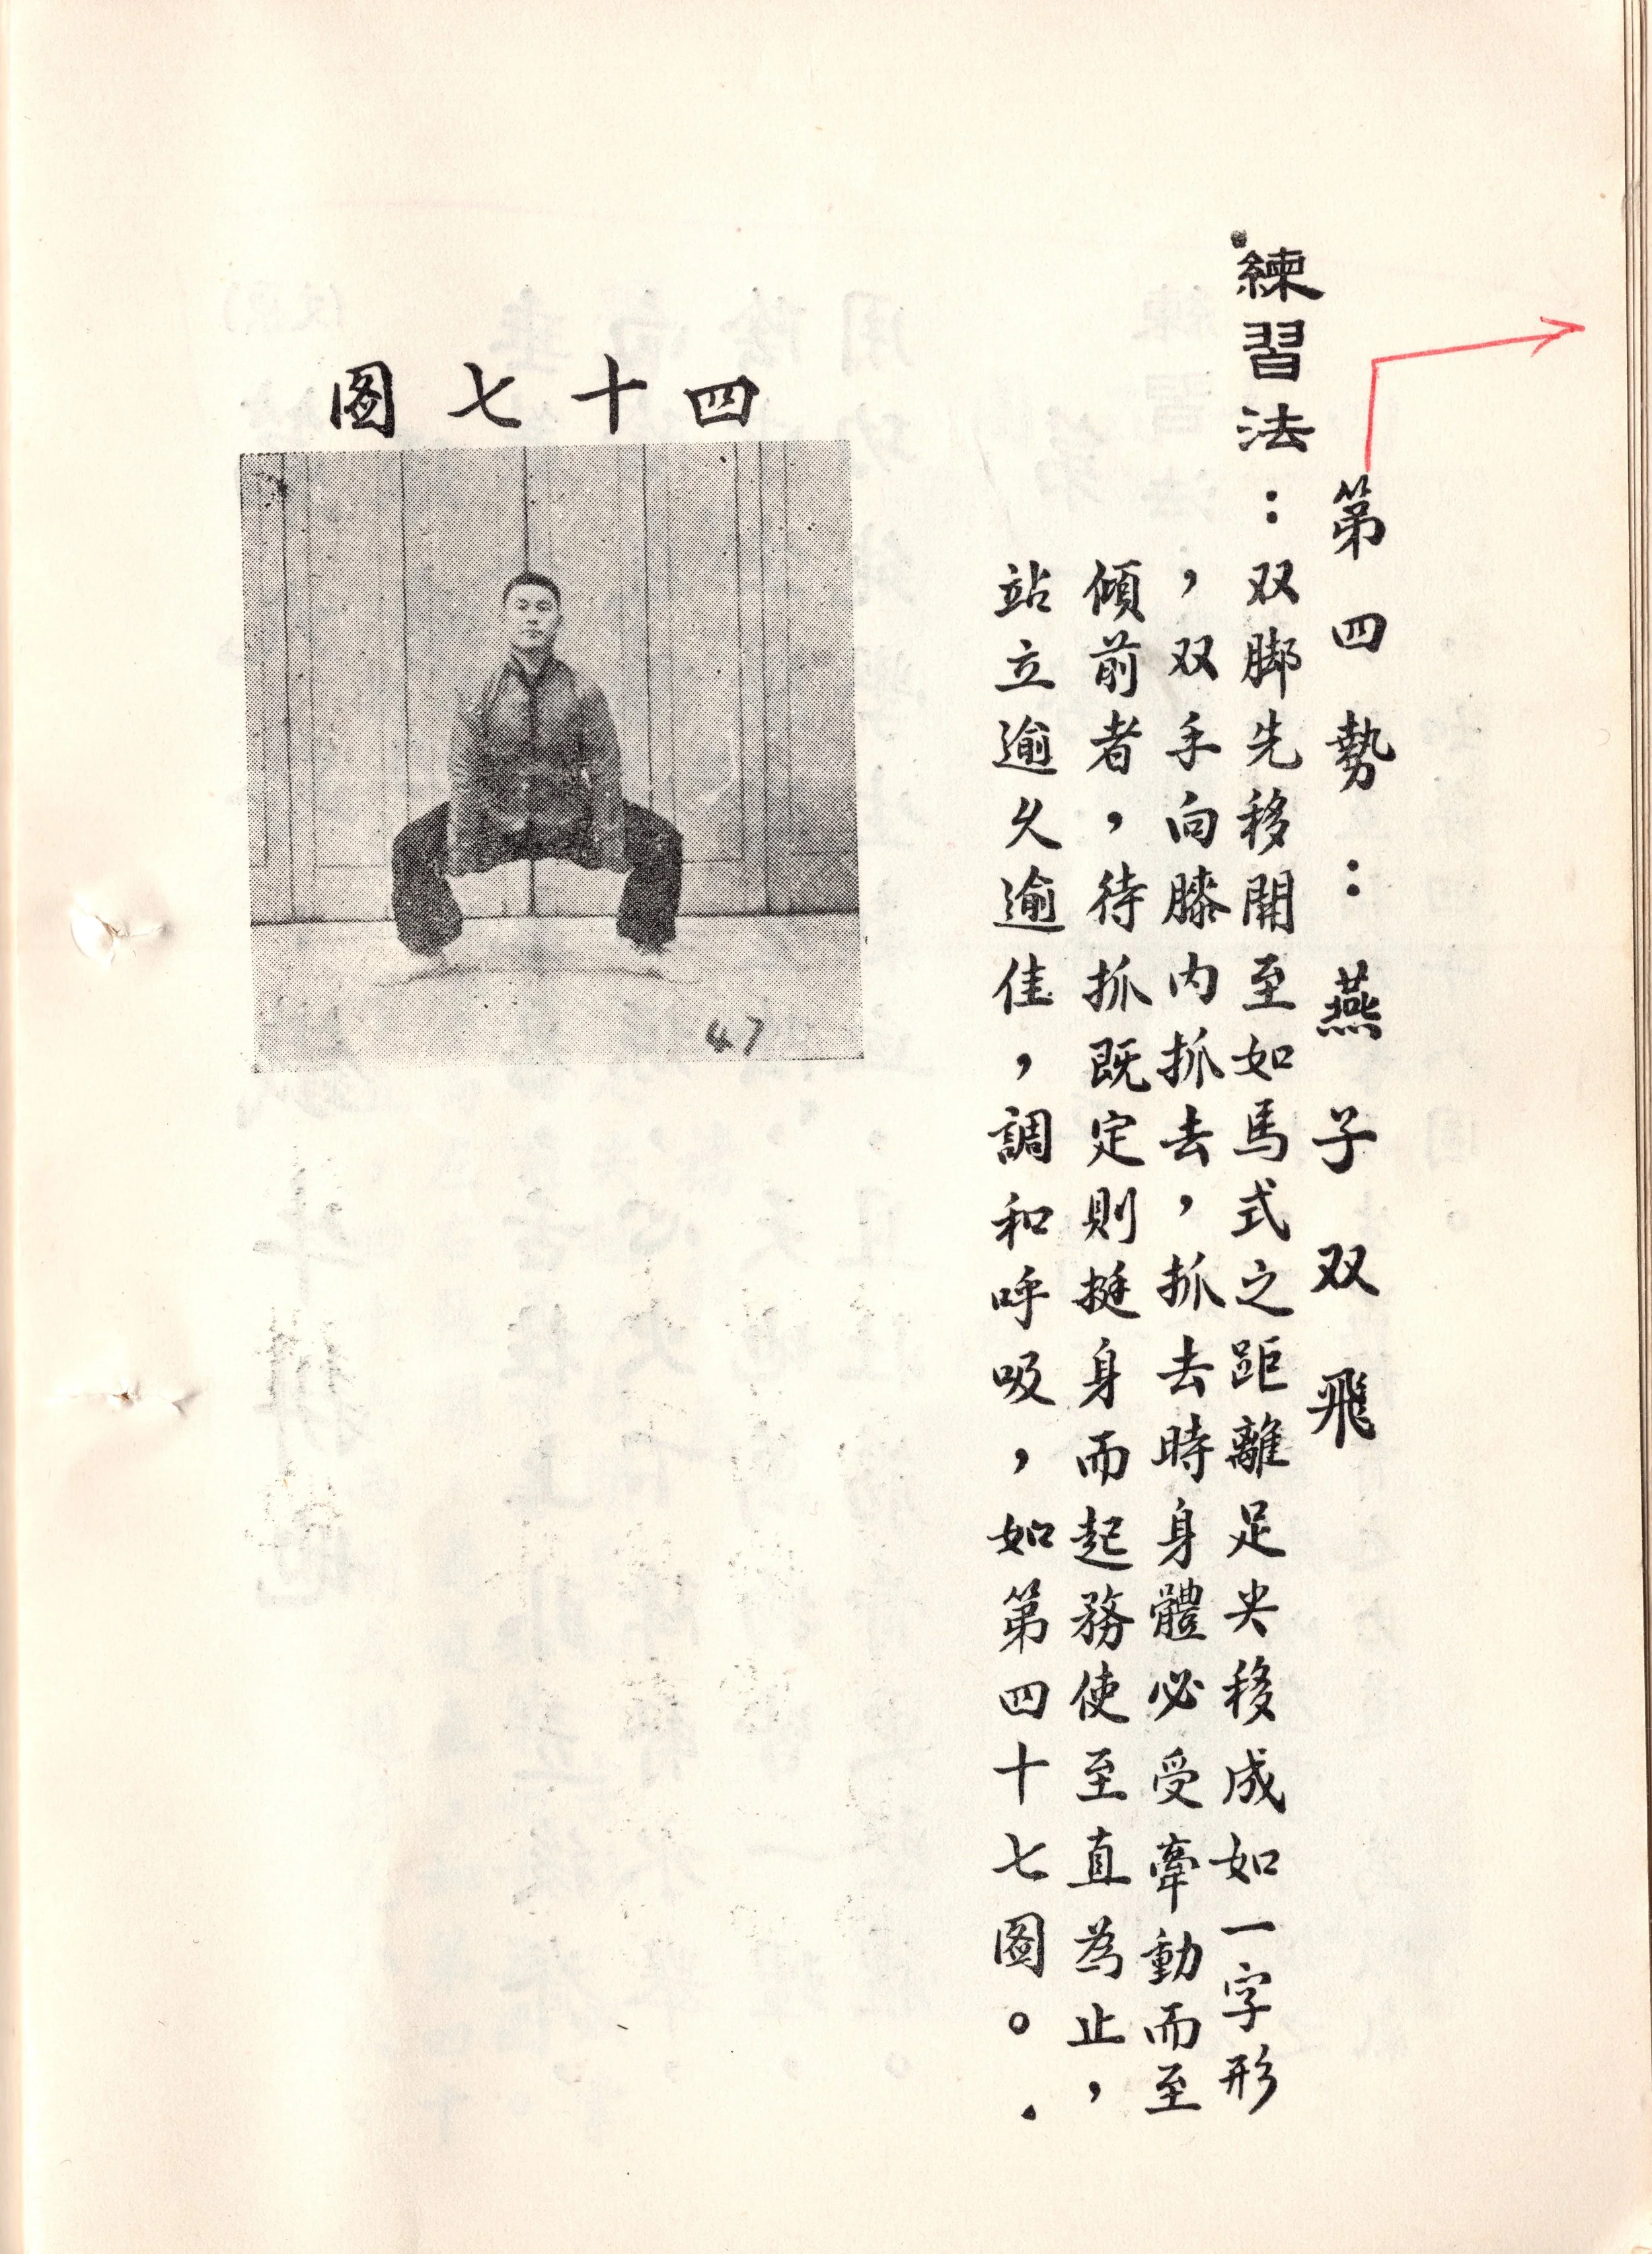 第四勢：燕子双飛
練習法：双脚先移開至如馬式之距離足尖移成如一字形
，双手向膝内抓去，抓去時身體必受牽動而至
傾前者，待抓既定則挺身而起務使至直為止，
站立逾久逾佳，調和呼吸，如第四十七图。
四十七图
47